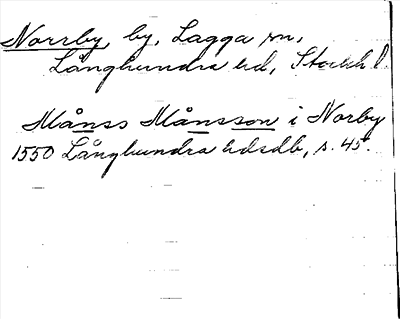 Norrby, by, Lagga sn,
Långhundra hd, Stockh l.
Månss Månsson i Norby
1550 Långhundra hdsdb, s. 45.